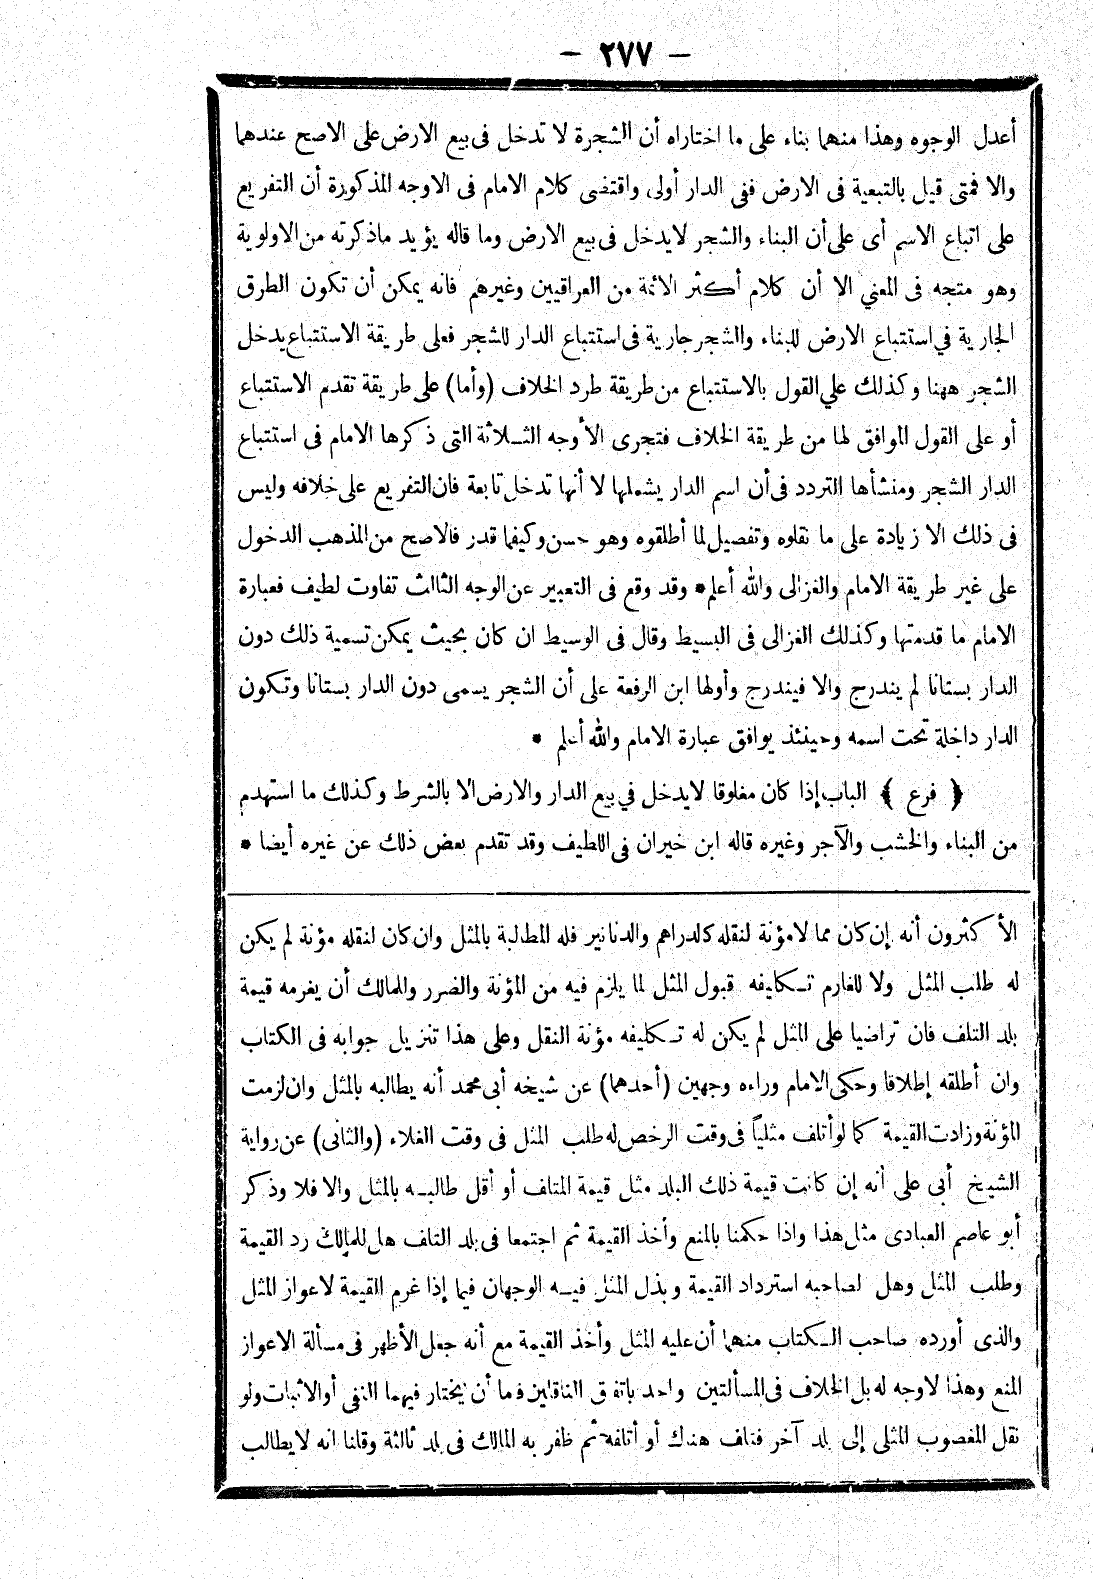 — ٢٧٧ —
أعدل الوجوه وهذا منهما بناء على ما اختاراه أن الشجرة لا تدخل فى بيع الارض على الاصح عندهما
والا فمتى قيل بالتبعية فى الارض ففى الدار أولى واقتضى كلام الامام فى الاوجه المذكورة أن التفريع
على اتباع الاسم أى على أن البناء والشجر لا يدخل فى بيع الارض وما قاله يؤيد ماذكرته من الاولوية
وهو متجه فى المعني الا أن كلام أكثر الائمة من العراقيين وغيرهم فانه يمكن أن تكون الطرق
الجارية في استتباع الارض للبناء والشجر جارية فى استتباع الدار للشجر فعلى طريقة الاستتباع يدخل
الشجر ههنا وكذلك علي القول بالاستتباع من طريقة طرد الخلاف (وأما) على طريقة تقدم الاستتباع
أو على القول الموافق لها من طريقة الخلاف فتجرى الأوجه الثلاثة التى ذكرها الامام فى استتباع
الدار الشجر ومنشأها التردد فى أن اسم الدار يشملها لا أنها تدخل تابعة فان التفريع على خلافه وليس
فى ذلك الا زيادة على ما نقلوه وتفصيل لما أطلقوه وهو حسن وكيفما قدر فالاصح من المذهب الدخول
على غير طريقة الامام والغزالى والله أعلم * وقد وقع فى التعبير عن الوجه الثالث تفاوت لطيف فعبارة
الامام ما قدمتها وكذلك الغزالى فى البسيط وقال فى الوسيط ان كان بحيث يمكن تسمية ذلك دون
الدار بستانا لم يندرج والا فيندرج وأولها ابن الرفعة على أن الشجر يسمى دون الدار بستانا وتكون
الدار داخلة تحت اسمه وحينئذ يوافق عبارة الامام والله أعلم *
﴿ فرع ﴾ الباب إذا كان مغلوقا لا يدخل في بيع الدار والارض الا بالشرط وكذلك ما استهدم
من البناء والخشب والآجر وغيره قاله ابن خيران فى اللطيف وقد تقدم بعض ذلك عن غيره أيضا *
الأكثرون أنه إن كان مما لا مؤنة لنقله كالدراهم والدنانير فله المطالبة بالمثل وان كان لنقله مؤنة لم يكن
له طلب المثل ولا للغارم تكليفه قبول المثل لما يلزم فيه من المؤنة والضرر وللمالك أن يغرمه قيمة
بلد التلف فان تراضيا على المثل لم يكن له تكليفه مؤنة النقل وعلى هذا تنزيل جوابه فى الكتاب
وان أطلقه إطلاقا وحكى الامام وراءه وجهين (أحدهما) عن شيخه أبى محمد أنه يطالبه بالمثل وان لزمت
المؤنة وزادت القيمة كما لو أتلف مثلياً فى وقت الرخص له طلب المثل فى وقت الغلاء (والثانى) عن رواية
الشيخ أبى على أنه إن كانت قيمة ذلك البلد مثل قيمة المتلف أو أقل طالبه بالمثل والا فلا وذكر
أبو عاصم العبادى مثل هذا واذا حكمنا بالمنع وأخذ القيمة ثم اجتمعا فى بلد التلف هل للمالك رد القيمة
وطلب المثل وهل لصاحبه استرداد القيمة وبذل المثل فيه الوجهان فيما إذا غرم القيمة لاعواز المثل
والذى أورده صاحب الكتاب منهما أن عليه المثل وأخذ القيمة مع أنه جعل الأظهر فى مسألة الاعواز
المنع وهذا لاوجه له بل الخلاف فى المسألتين واحد باتفاق الناقلين فاما أن يختار فيهما النفى أو الاثبات ولو
نقل المغصوب المثلى إلى بلد آخر فتلف هناك أو أتلفه ثم ظفر به المالك فى بلد ثالثة وقلنا انه لا يطالب